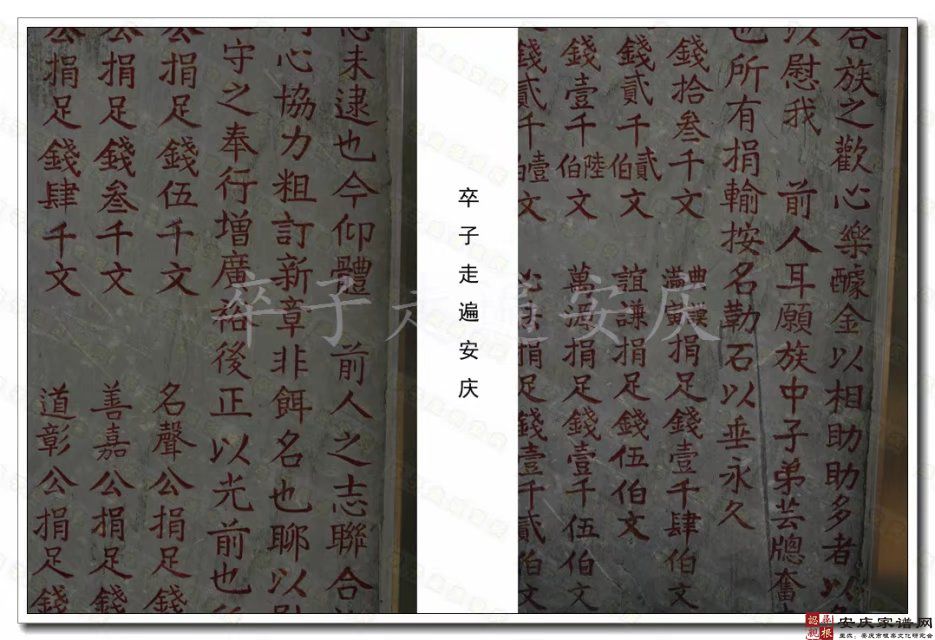 合族之歡心樂醵金以相助助多者以
以慰我 前人耳願族中子弟芸牕奮
也所有捐輸按名勒石以垂永久
錢拾叁千文 捐足錢壹千肆伯文
錢貳千貳伯文 誼謙捐足錢伍伯文
錢壹千陸伯文 萬源捐足錢壹千伍伯文
錢貳千壹伯文 捐足錢壹千貳伯文
卒子走遍安庆
志未逮也今仰體 前人之志聯合
心協力粗訂新章非餌名也聊以
守之奉行增廣裕後正以光前也
公捐足錢伍千文 名聲公捐足錢
公捐足錢叁千文 善嘉公捐足錢
公捐足錢肆千文 道彰公捐足錢
卒子走遍安庆
安庆家谱网